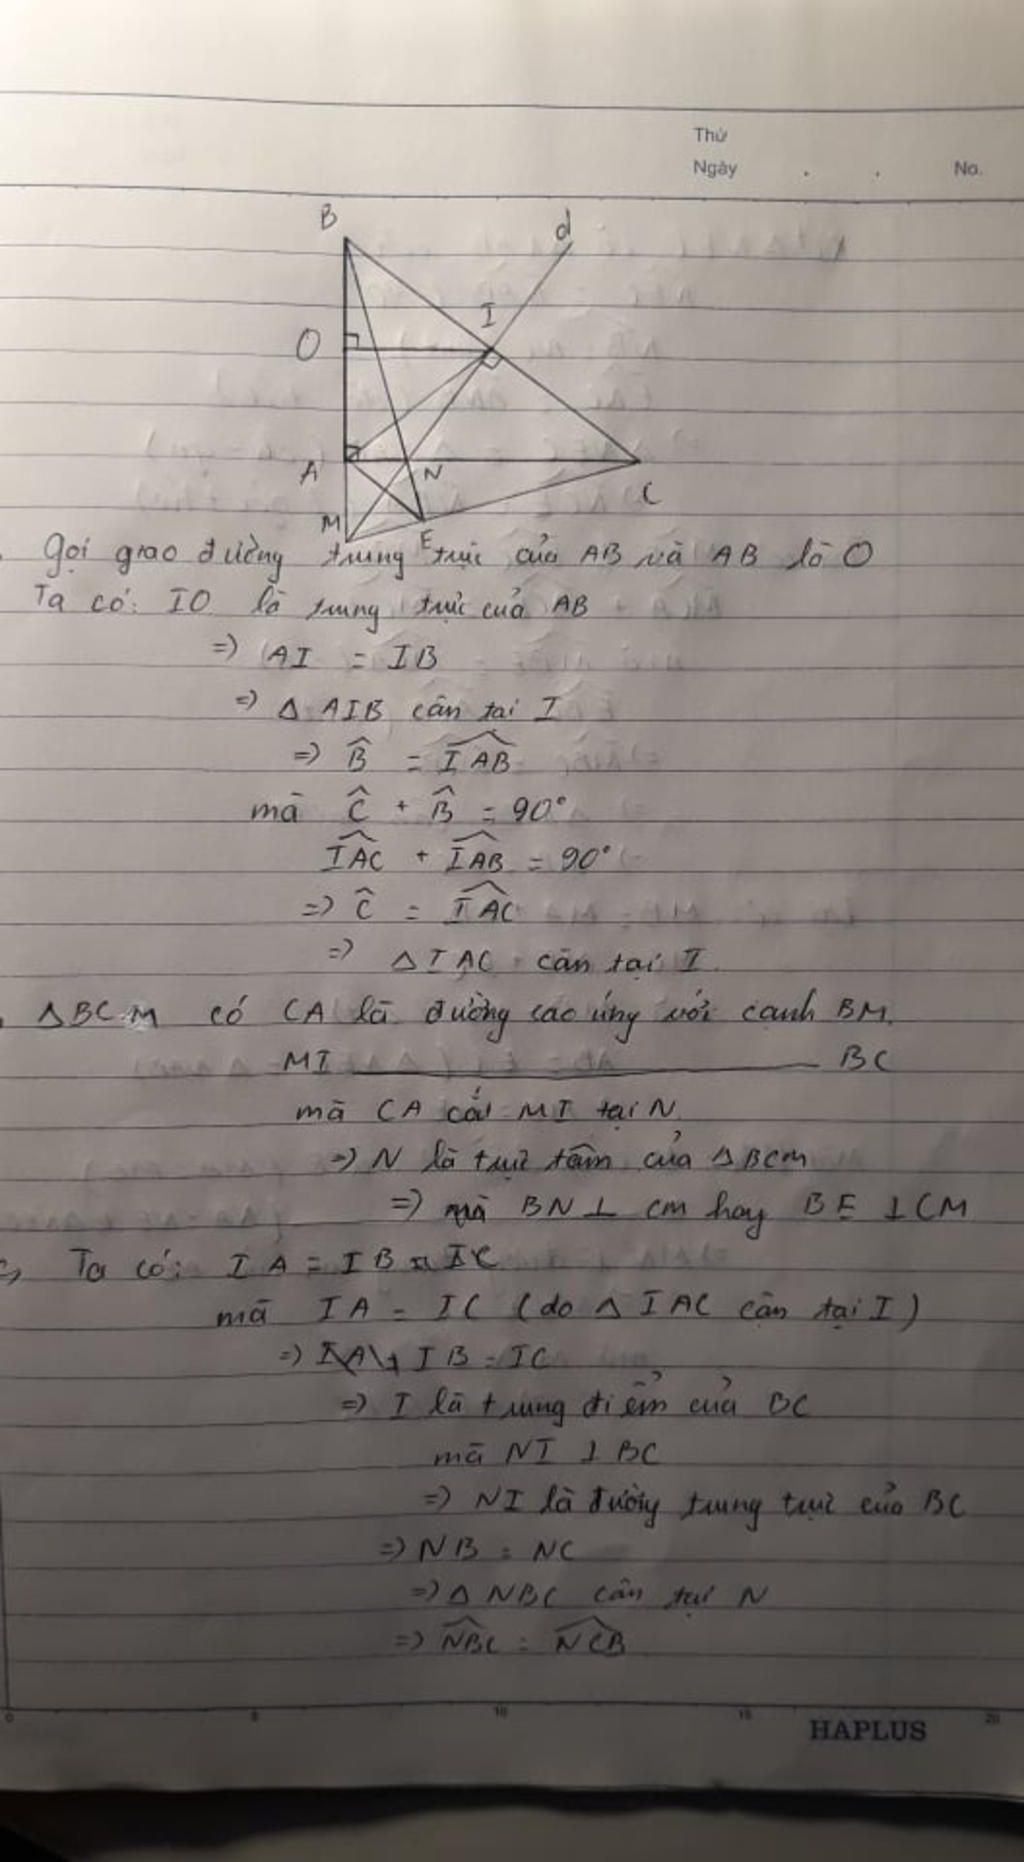 Thứ
Ngày . . No.
B
d
I
O
A
N
C
M
E
Gọi giao đường trung trực của AB và AB là O
Ta có: IO là trung trực của AB
=> AI = IB
=> Δ AIB cân tại I
=> B̂ = \widehat{IAB}
mà Ĉ + B̂ = 90°
\widehat{IAC} + \widehat{IAB} = 90°
=> Ĉ = \widehat{IAC}
=> Δ IAC cân tại I.
ΔBCM có CA là đường cao ứng với cạnh BM.
MI ——— BC
mà CA cắt MI tại N
=> N là trực tâm của ΔBCM
=> mà BN ⊥ CM hay BE ⊥ CM
c, Ta có: IA = IB
mà IA = IC (do Δ IAC cân tại I)
=> IB = IC
=> I là trung điểm của BC
mà NI ⊥ BC
=> NI là đường trung trực của BC
=> NB = NC
=> Δ NBC cân tại N
=> \widehat{NBC} = \widehat{NCB}
0 5 10 15 20
HAPLUS